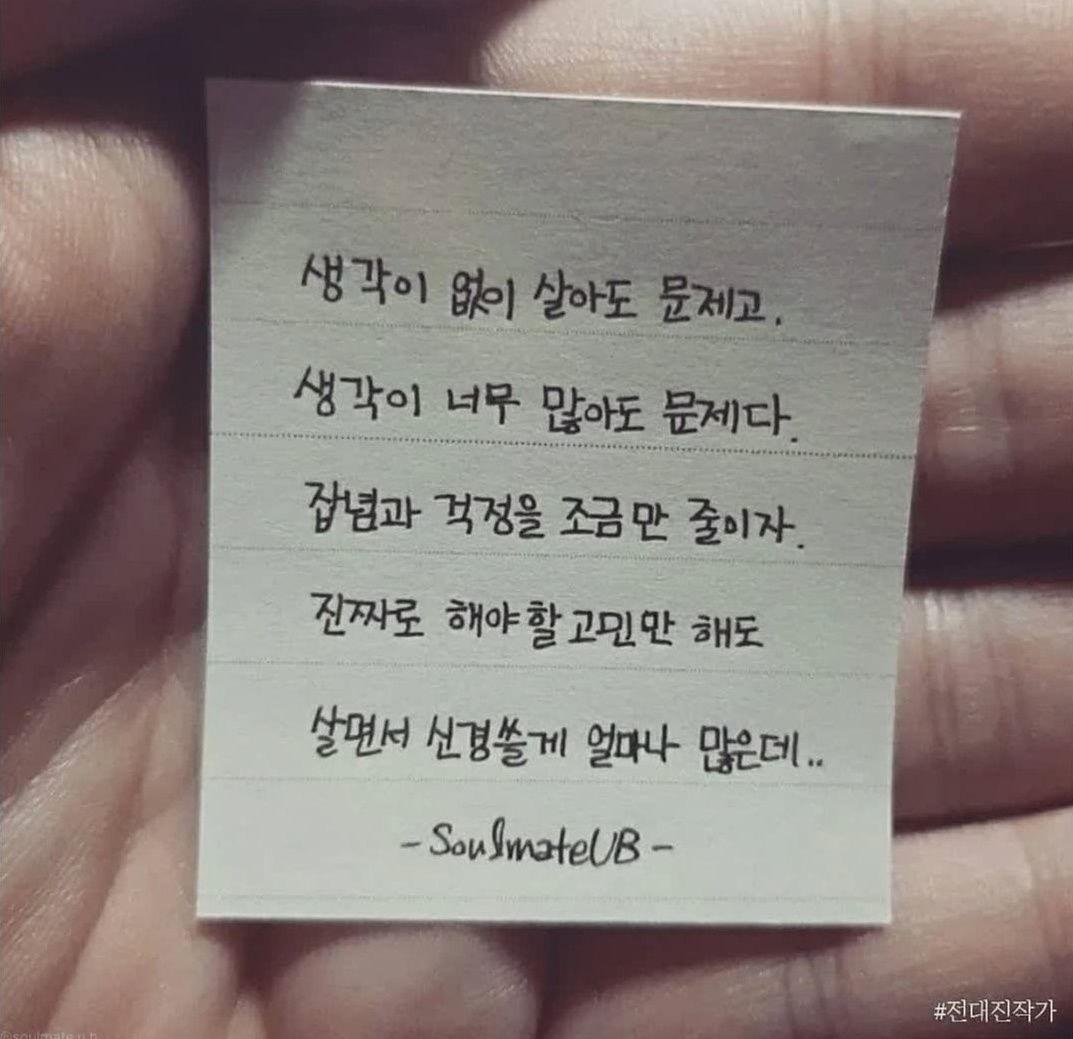 생각이 없이 살아도 문제고.
생각이 너무 많아도 문제다.
잡념과 걱정을 조금만 줄이자.
진짜로 해야할 고민만 해도
살면서 신경쓸게 얼마나 많은데..
-SoulmateUB-
#전대진작가